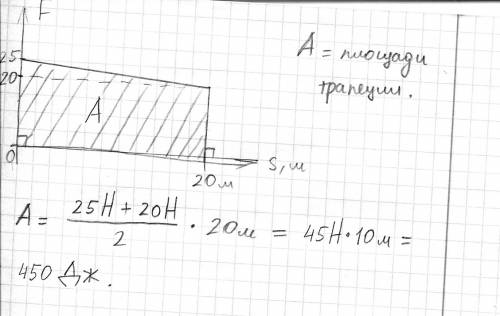 F
25
20
A
0
20м
S, м
A = площади
трапеции.
A = 25Н + 20Н / 2 · 20м = 45Н · 10м =
450 Дж.